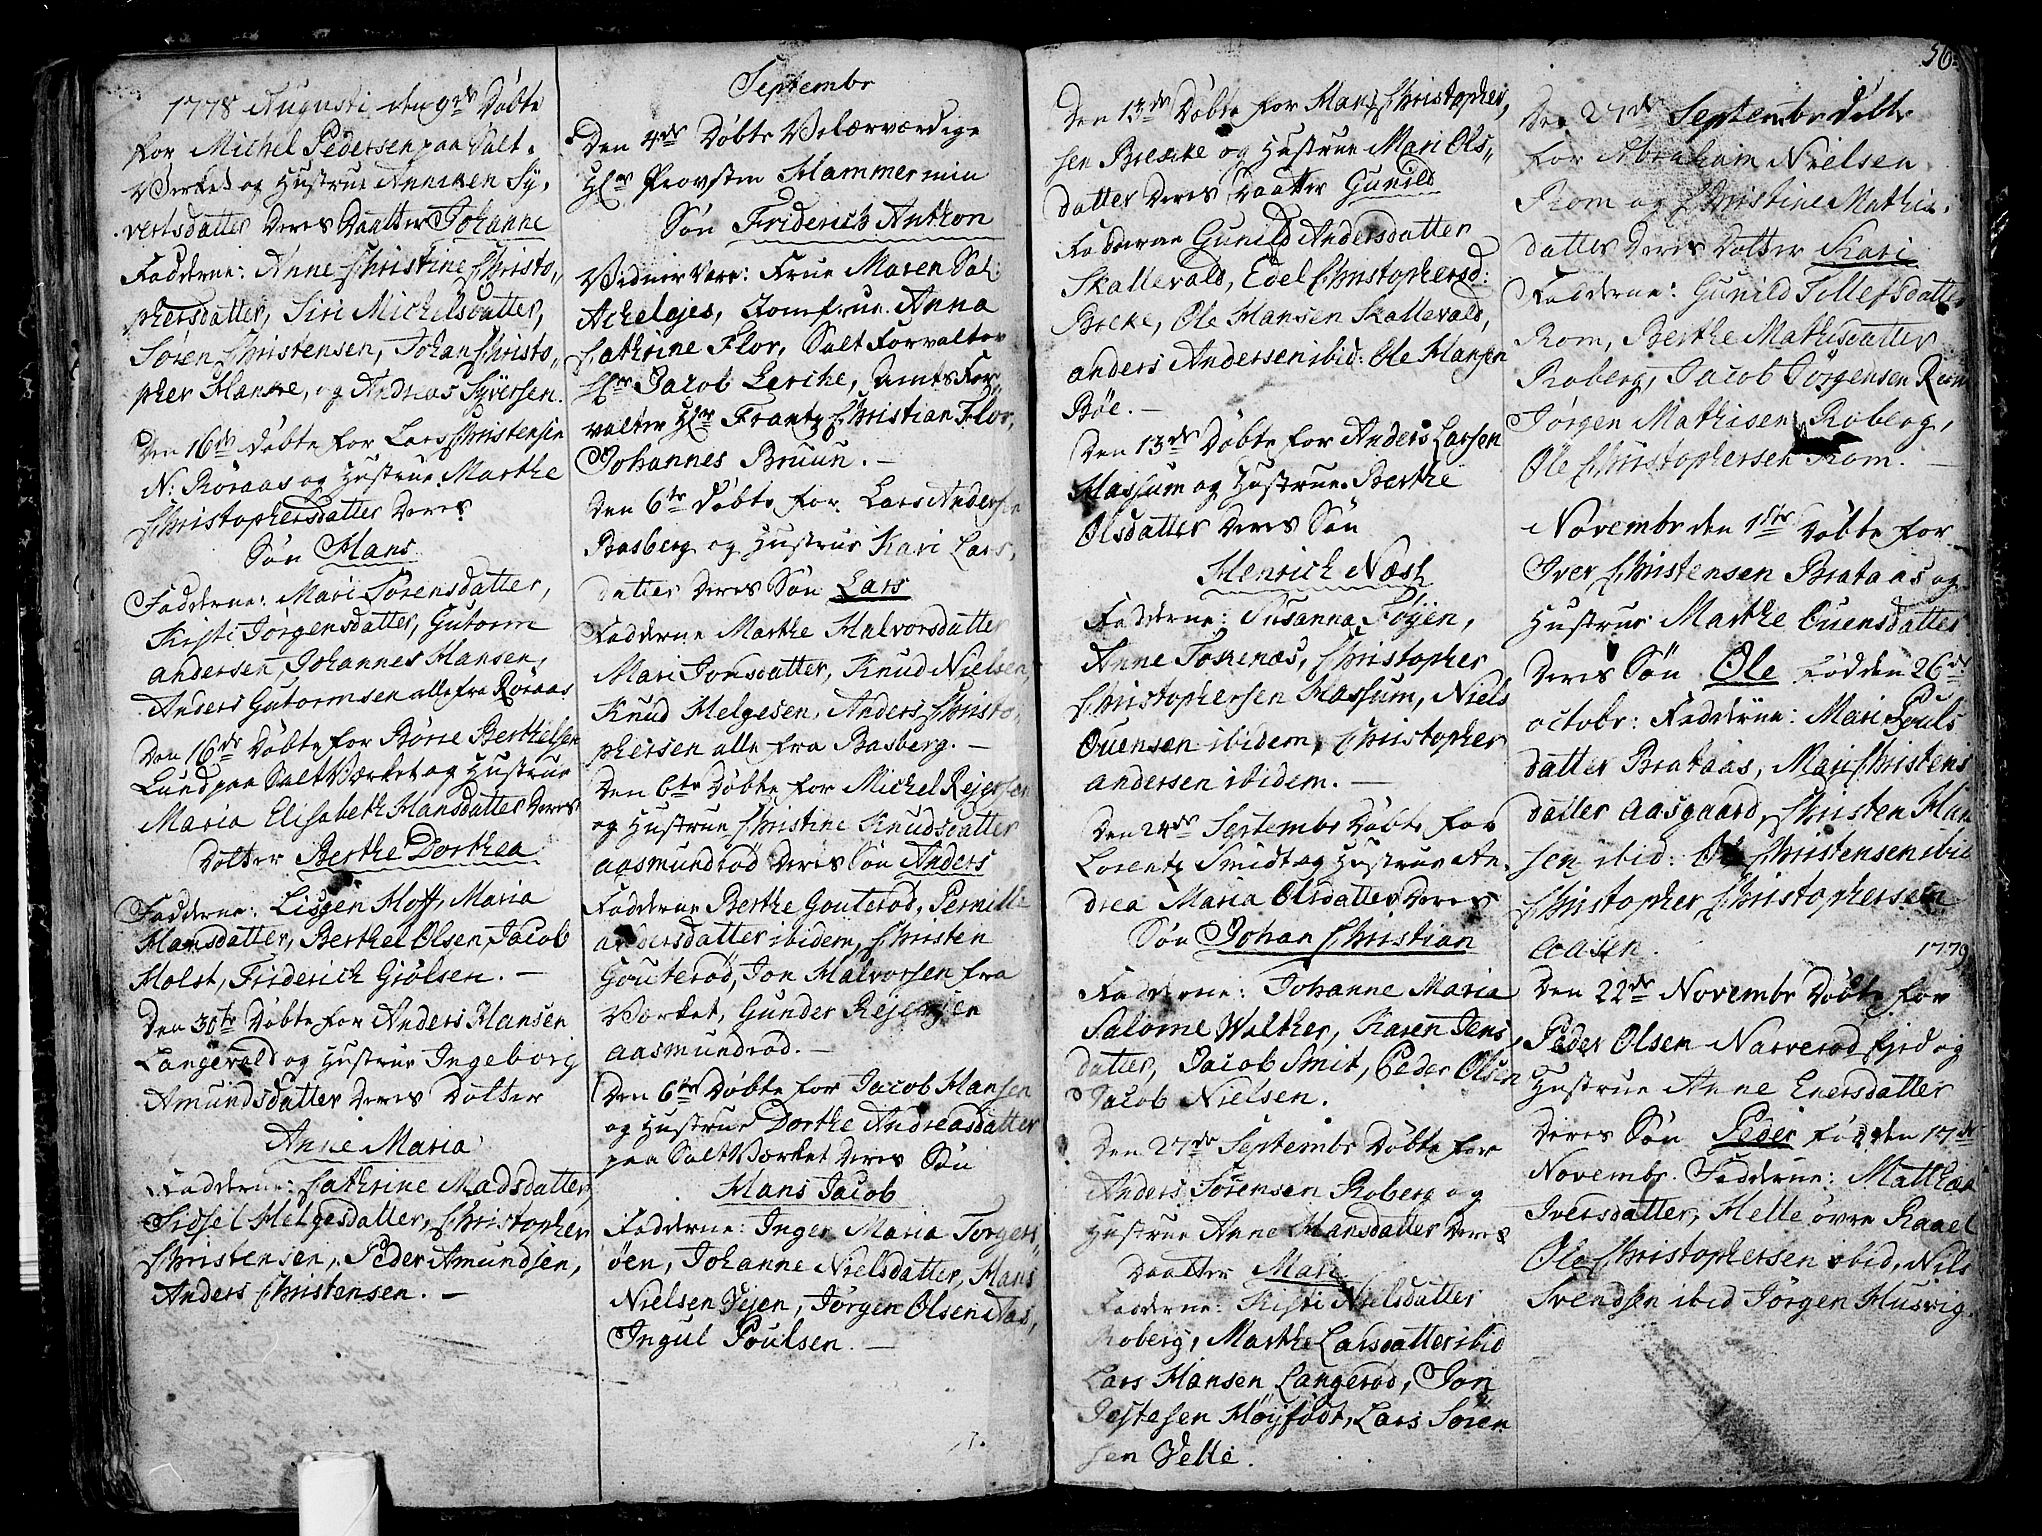 1778 Augusti den 9de Døbte
for Michel Pedersen paa Salt,
Værket og Hustrue Anniken Sy,
vertsdatter deres Daatter Johanne
Fadderne: Anne Christine Christo,,
phersdatter, Siri Michelsdatter,
Søren Christensen, Johan Christo,
pher Hanke, og Andreas Syversen.
Den 16de Døbte for Lars Christensen
N: Røraas og Hustrue Marthe
Christophersdatter deres
Søn Hans
Fadderne: Mari Sørensdatter,
Kisti Jørgensdatter, Gutorm
andersen, Johannes Hansen,
Anders Gutormsen alle fra Røraas
Den 16de Døbte for Børre Berthelsen
Lund paa SaltVærket og Hustrue
Maria Elisabeth Hansdatter deres
Dotter Berthe Dorthea
Fadderne: Lisgen Hoff, Maria
Hansdatter, Berthel Olsen, Jacob
Holst, Friderich Giølsen. —
Den 30te Døbte for Anders Hansen
Langevald og Hustrue Ingeborg
Amundsdatter deres Dotter
Anne Maria
Fadderne: Cathrine Madsdatter,
Sidsel Helgesdatter, Christopher
Christensen, Peder Amundsen,
Anders Christensen. —
Septembr
Den 4de Døbte Velærværdige
Hr Provsten Hammer min
Søn Friderich Anthon
Vidner vare: Frue Maren Sal:
Achelejes, Jomfrue Anna
Cathrine Flor, Salt Forvalter
Hr Jacob Lerche, Amts For,,
valter Hr Frantz Christian Flor,
Johannes Bruun. —
Den 6te Døbte for Lars Andersen
Basberg og Hustrue Kari Lars,
datter deres Søn Lars
Fadderne Marthe Halvorsdatter
Mari Jonsdatter, Knud Nielsen,
Knud Helgesen, Anders Christo,
phersen alle fra Basberg. —
Den 6te Døbte for Michel Rejersen
og Hustrue Christine Knudsdatter
aasmundrød deres Søn Anders
Fadderne Berthe Gouterød, Pernille
andersdatter ibidem, Christen
Gouterød, Jon Halvorsen fra
Værket, Gunder Rejersen
aasmundrød. —
Den 6te Døbte for Jacob Hansen
og Hustrue Dorthe Andreasdatter
paa SaltVærket deres Søn
Hans Jacob
Fadderne: Inger Maria Torgers,,
øen, Johanne Nielsdatter, Hans
Nielsen Vejen, Jørgen Olsen Aas,
Ingul Poulsen. —
56.
Den 13de Døbte for Hans Christopher,
sen Brecke og Hustrue Mari Ols,,
datter deres Daatter Gunild
Fadderne Gunild Andersdatter
Skallevald, Edel Christophersd:
Breke, Ole Hansen Skallevald,
anders Andersen ibid: Ole Hansen
Bøe. —
Den 13de Døbte for Anders Larsen
Hassum og Hustrue Berthe
Olsdatter deres Søn
Henrich Næsh
Fadderne: Susanna Føyen,
Anne Toskenæs, Christopher
Christophersen Hassum, Niels
Ouensen ibidem, Christopher
andersen ibidem. —
Den 24de Septembr Døbte for
Lorentz Smidt og Hustrue An,
drea Maria Olsdatter deres
Søn Johan Christian
Fadderne: Johanne Maria
Salome Walther, Karen Jens,
datter, Jacob Smit, Peder Olsen
Jacob Nielsen.
Den 27de Septembr Døbte for
Anders Sørensen Roberg og
Hustrue Anne Hansdatter deres
Daatter Mari
Fadderne: Kisti Nielsdatter
Roberg, Marthe Larsdatter ibid
Lars Hansen Langerød, Jon
Jestesen Høyjødt, Lars Søren
sen Velle.
Den 27de Septembr Døbte
for Abraham Nielsen
Rom og Christine Mathis,
datter deres Dotter Kari
Fadderne: Gunild Tollefsdatter
Rom, Berthe Mathisdatter
Roberg, Jacob Jørgensen Rom
Jørgen Mathisen Roberg,
Ole Christophersen Rom. —
Novembr den 1ste Døbte for
Iver Christensen Brataas og
Hustrue Marthe Ouensdatter
deres Søn Ole Fød den 26de
octobr: Fadderne: Mari Pouls
datter Brataas, Mari Christens
datter aasgaard, Christen Han
sen ibid: Ole Christensen ibid
Christopher Christophersen
aasen.
1779
Den 22de Novembr Døbte for
Peder Olsen Narverød Ejed og
Hustrue Anne Eversdatter
deres Søn Peder fød den 17de
Novembr. Fadderne: Matthia
Iversdatter, Helle øvre Raael
Ole Christophersen ibid, Nils
Svendsen ibid Jørgen Husvig.